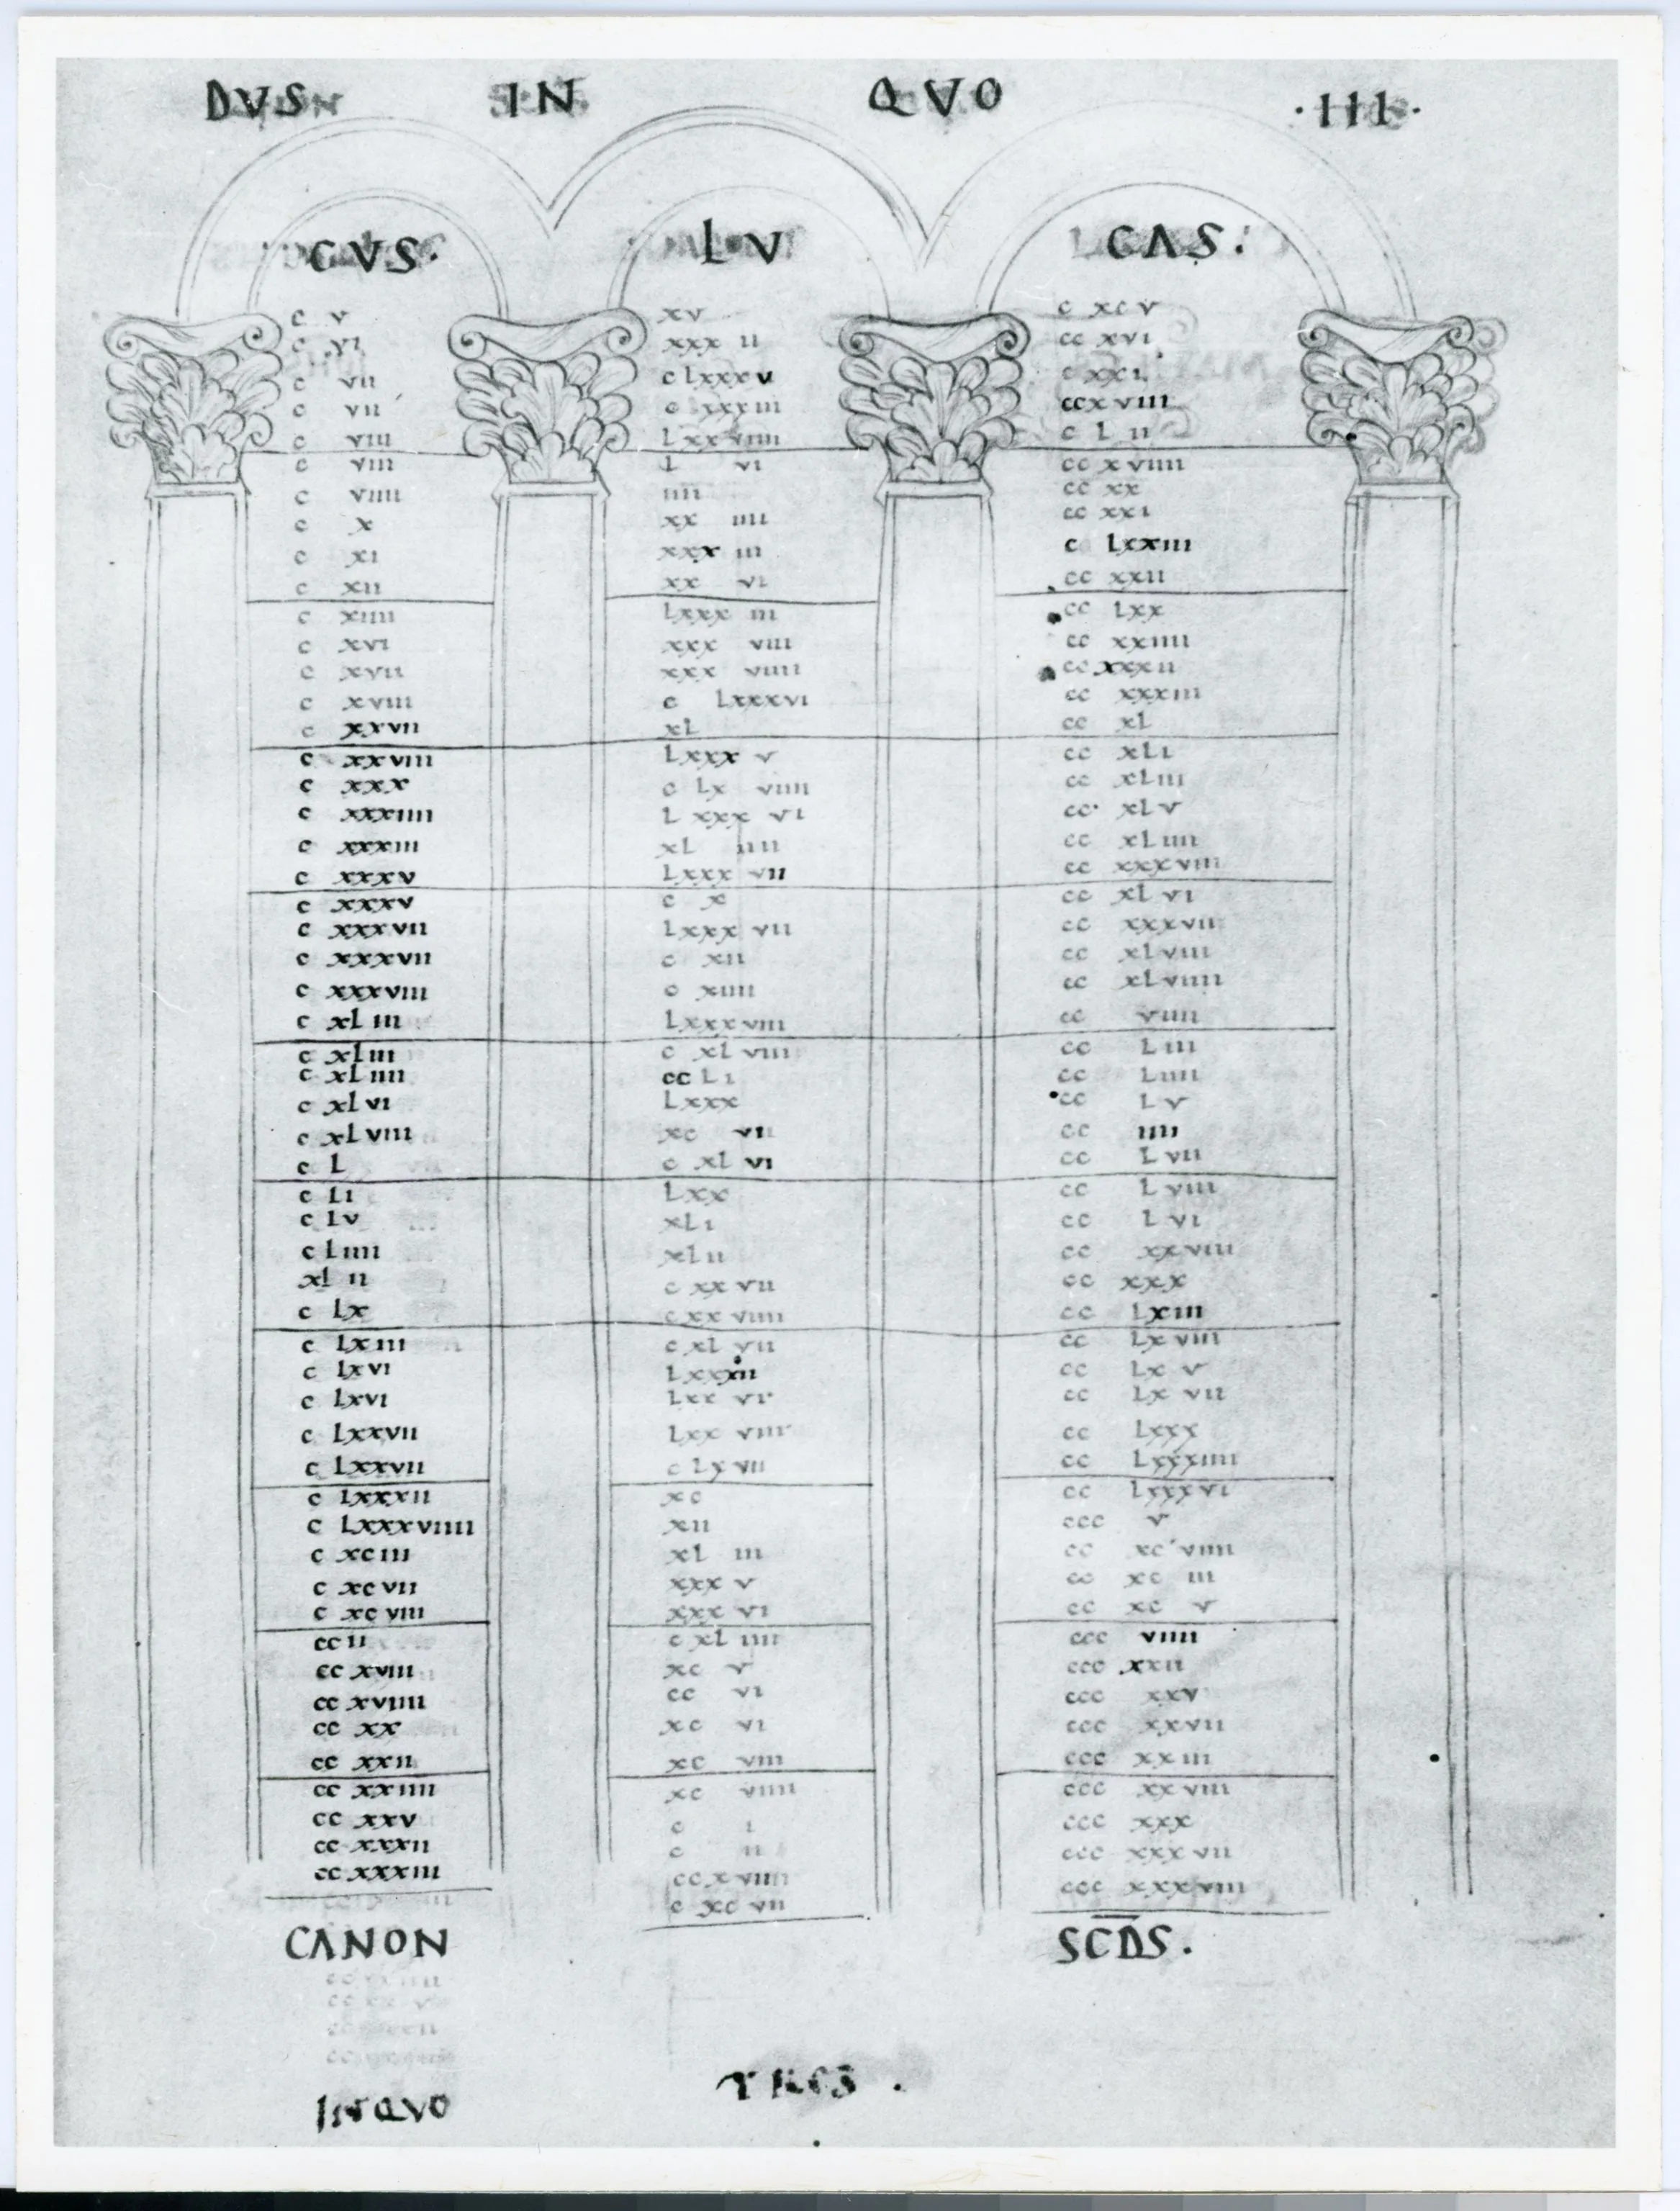 DVS IN QVO ·III·
CVS· LV CAS:
c v xv c xc v
c vi xxx ii cc xvi
c vii c lxxx v c xxi
c vii c xxxiii ccx viii
c viii Lxx viiii c L ii
c viii L vi cc x viiii
c viiii iiii cc xx
c x xx iiii cc xxi
c xi xxx iii c Lxxiii
c xii xx vi cc xxii
c xiiii Lxxx iii cc Lxx
c xvi xxx viii cc xxiiii
c xvii xxx viiii cc xxxii
c xviii c Lxxxvi cc xxxiii
c xxvii xL cc xL
c xxviii Lxxx v cc xLi
c xxx c Lx viiii cc xLiii
c xxxiiii L xxx vi cc· xL v
c xxxiii xL iiii cc xLiiii
c xxxv Lxxx vii cc xxxviii
c xxxv c x cc xL vi
c xxxvii Lxxx vii cc xxxvii
c xxxvii c xii cc xLviii
c xxxviii c xiiii cc xLviiii
c xL iii Lxxxviii cc viiii
c xLiii c xL viii cc L iii
c xLiiii cc Li cc Liiii
c xLvi Lxxx cc L v
c xLviii xc vii cc iiii
c L c xL vi cc L vii
c Li Lxx cc L viii
c Lv xLi cc L vi
c Liiii xLii cc xxviii
xL ii c xx vii cc xxx
c Lx c xx viiii cc Lxiii
c Lxiii c xL vii cc Lx viii
c Lxvi Lxxxii cc Lx v
c Lxvi Lxx vi cc Lx vii
c Lxxvii Lxx viii cc Lxxx
c Lxxvii c Lx vii cc Lxxxiiii
c Lxxxii xc cc Lxxxvi
c Lxxxviiii xii ccc v
c xciii xL iii cc xc viiii
c xcvii xxx v cc xc iii
c xcviii xxx vi cc xc v
cc ii c xL iiii ccc viiii
cc xviii xc v ccc xxii
cc xviiii cc vi ccc xxv
cc xx xc vi ccc xxvii
cc xxii xc viii ccc xx iii
cc xxiiii xc viiii ccc xx viii
cc xxv c i ccc xxx
cc xxxii c ii ccc xxx vii
cc xxxiii cc x viiii ccc xxxviii
c xc vii
CANON SCDS.
INQVO